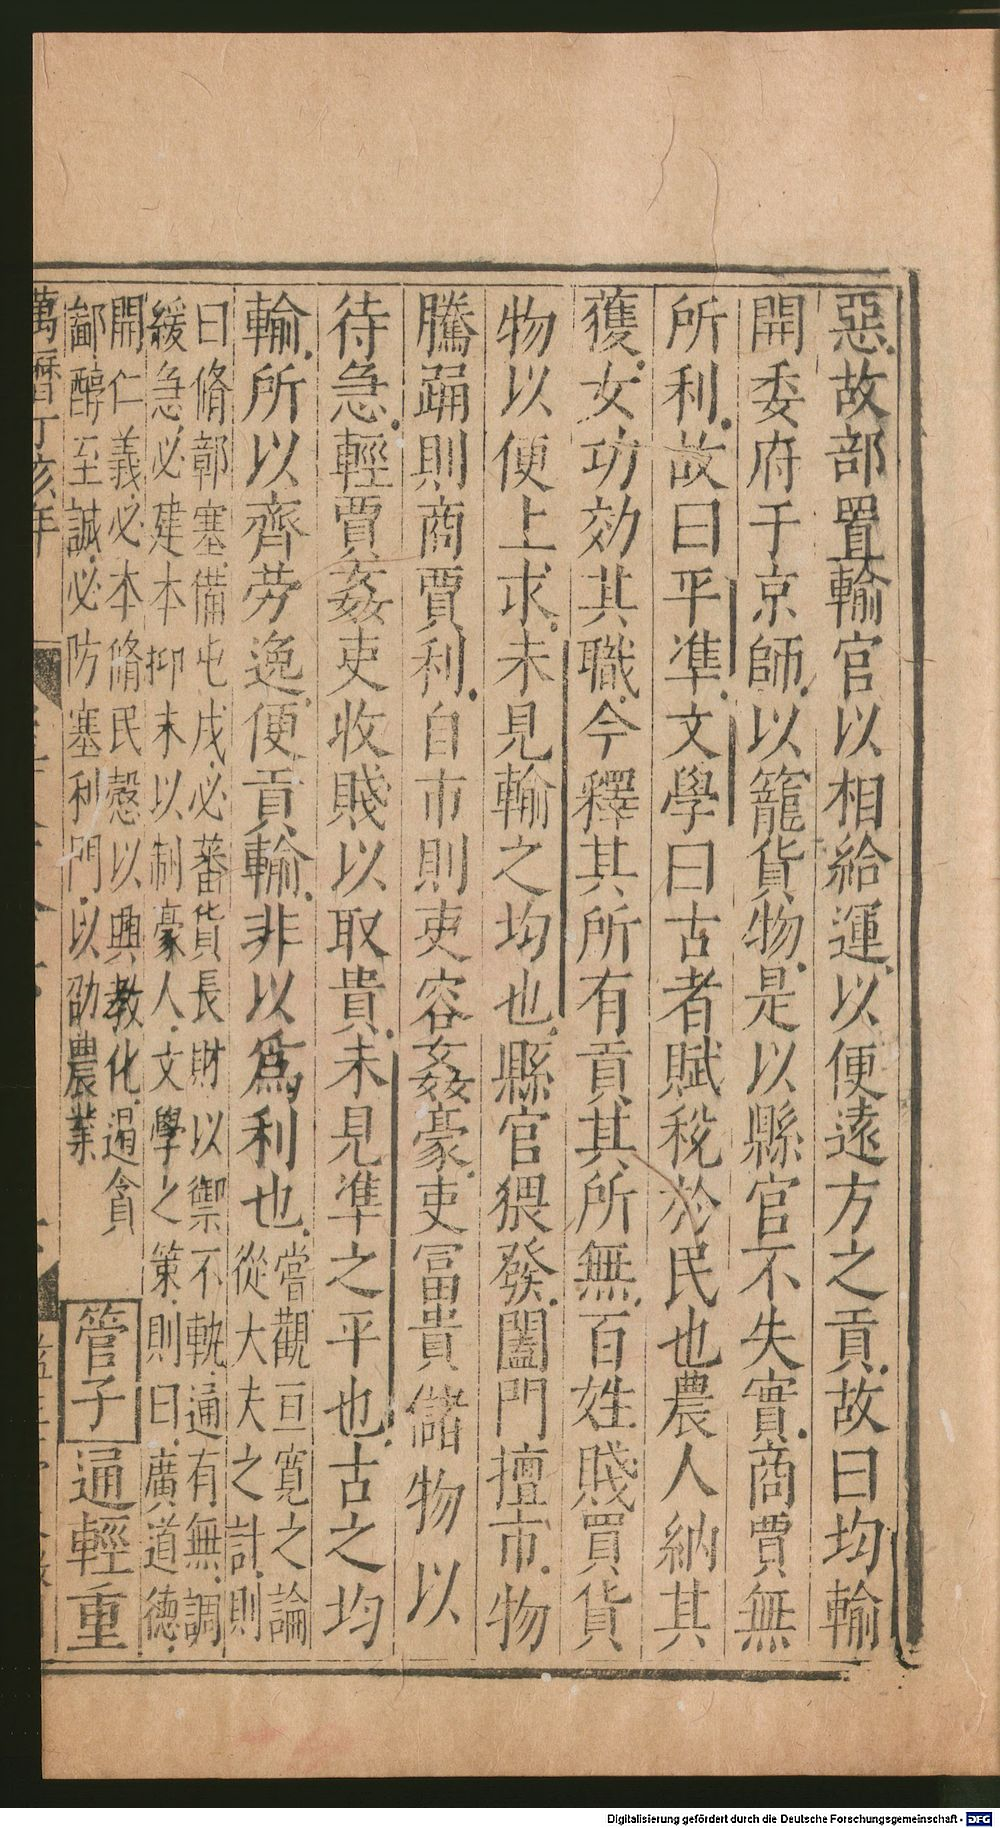 惡故部置輸官以相給運以便遠方之貢故曰均輸
開委府于京師以籠貨物是以縣官不失實商賈無
所利故曰平準文學曰古者賦稅於民也農人納其
獲女功効其職今釋其所有貢其所無百姓賤買貨
物以便上求未見輸之均也縣官猥發闔門擅市物
騰踊則商賈利自市則吏容姦豪吏富貴儲物以
待急輕賈姦吏收賤以取貴未見準之平也古之均
輸所以齊劳逸便貢輸非以爲利也
嘗觀亘寬之論
從大夫之計則
曰脩鄣塞備屯戍必蕃貨長財以禦不軌通有無調
緩急必建本抑末以制豪人文學之策則曰廣道德
開仁義必本脩民慤以興教化遏貪
鄙醇至誠必防塞利門以劭農業
管子通輕重
萬曆丁亥年
Digitalisierung gefördert durch die Deutsche Forschungsgemeinschaft - DFG